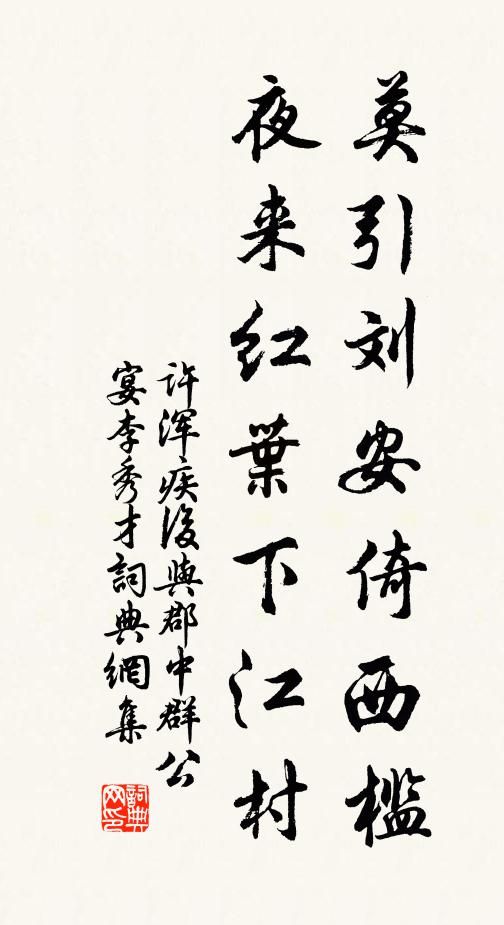 莫引刘安倚西檻
夜来红葉下江村
许浑疾後與郡中群公
宴李秀才詞典網集
詞典
网印